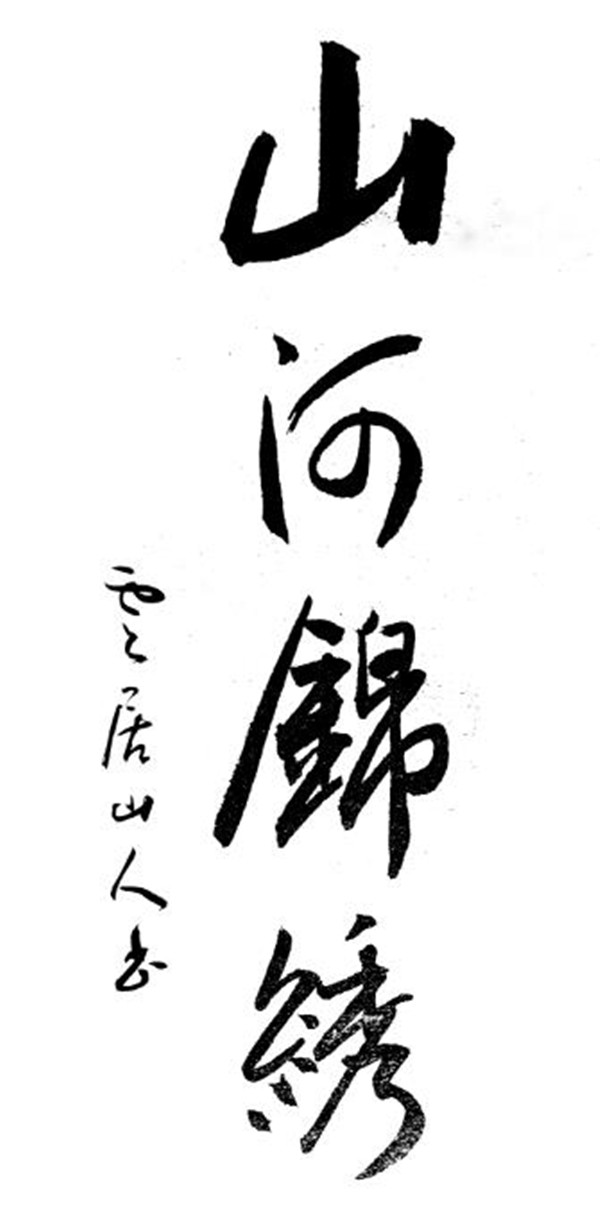 山河錦綉
雲居山人书